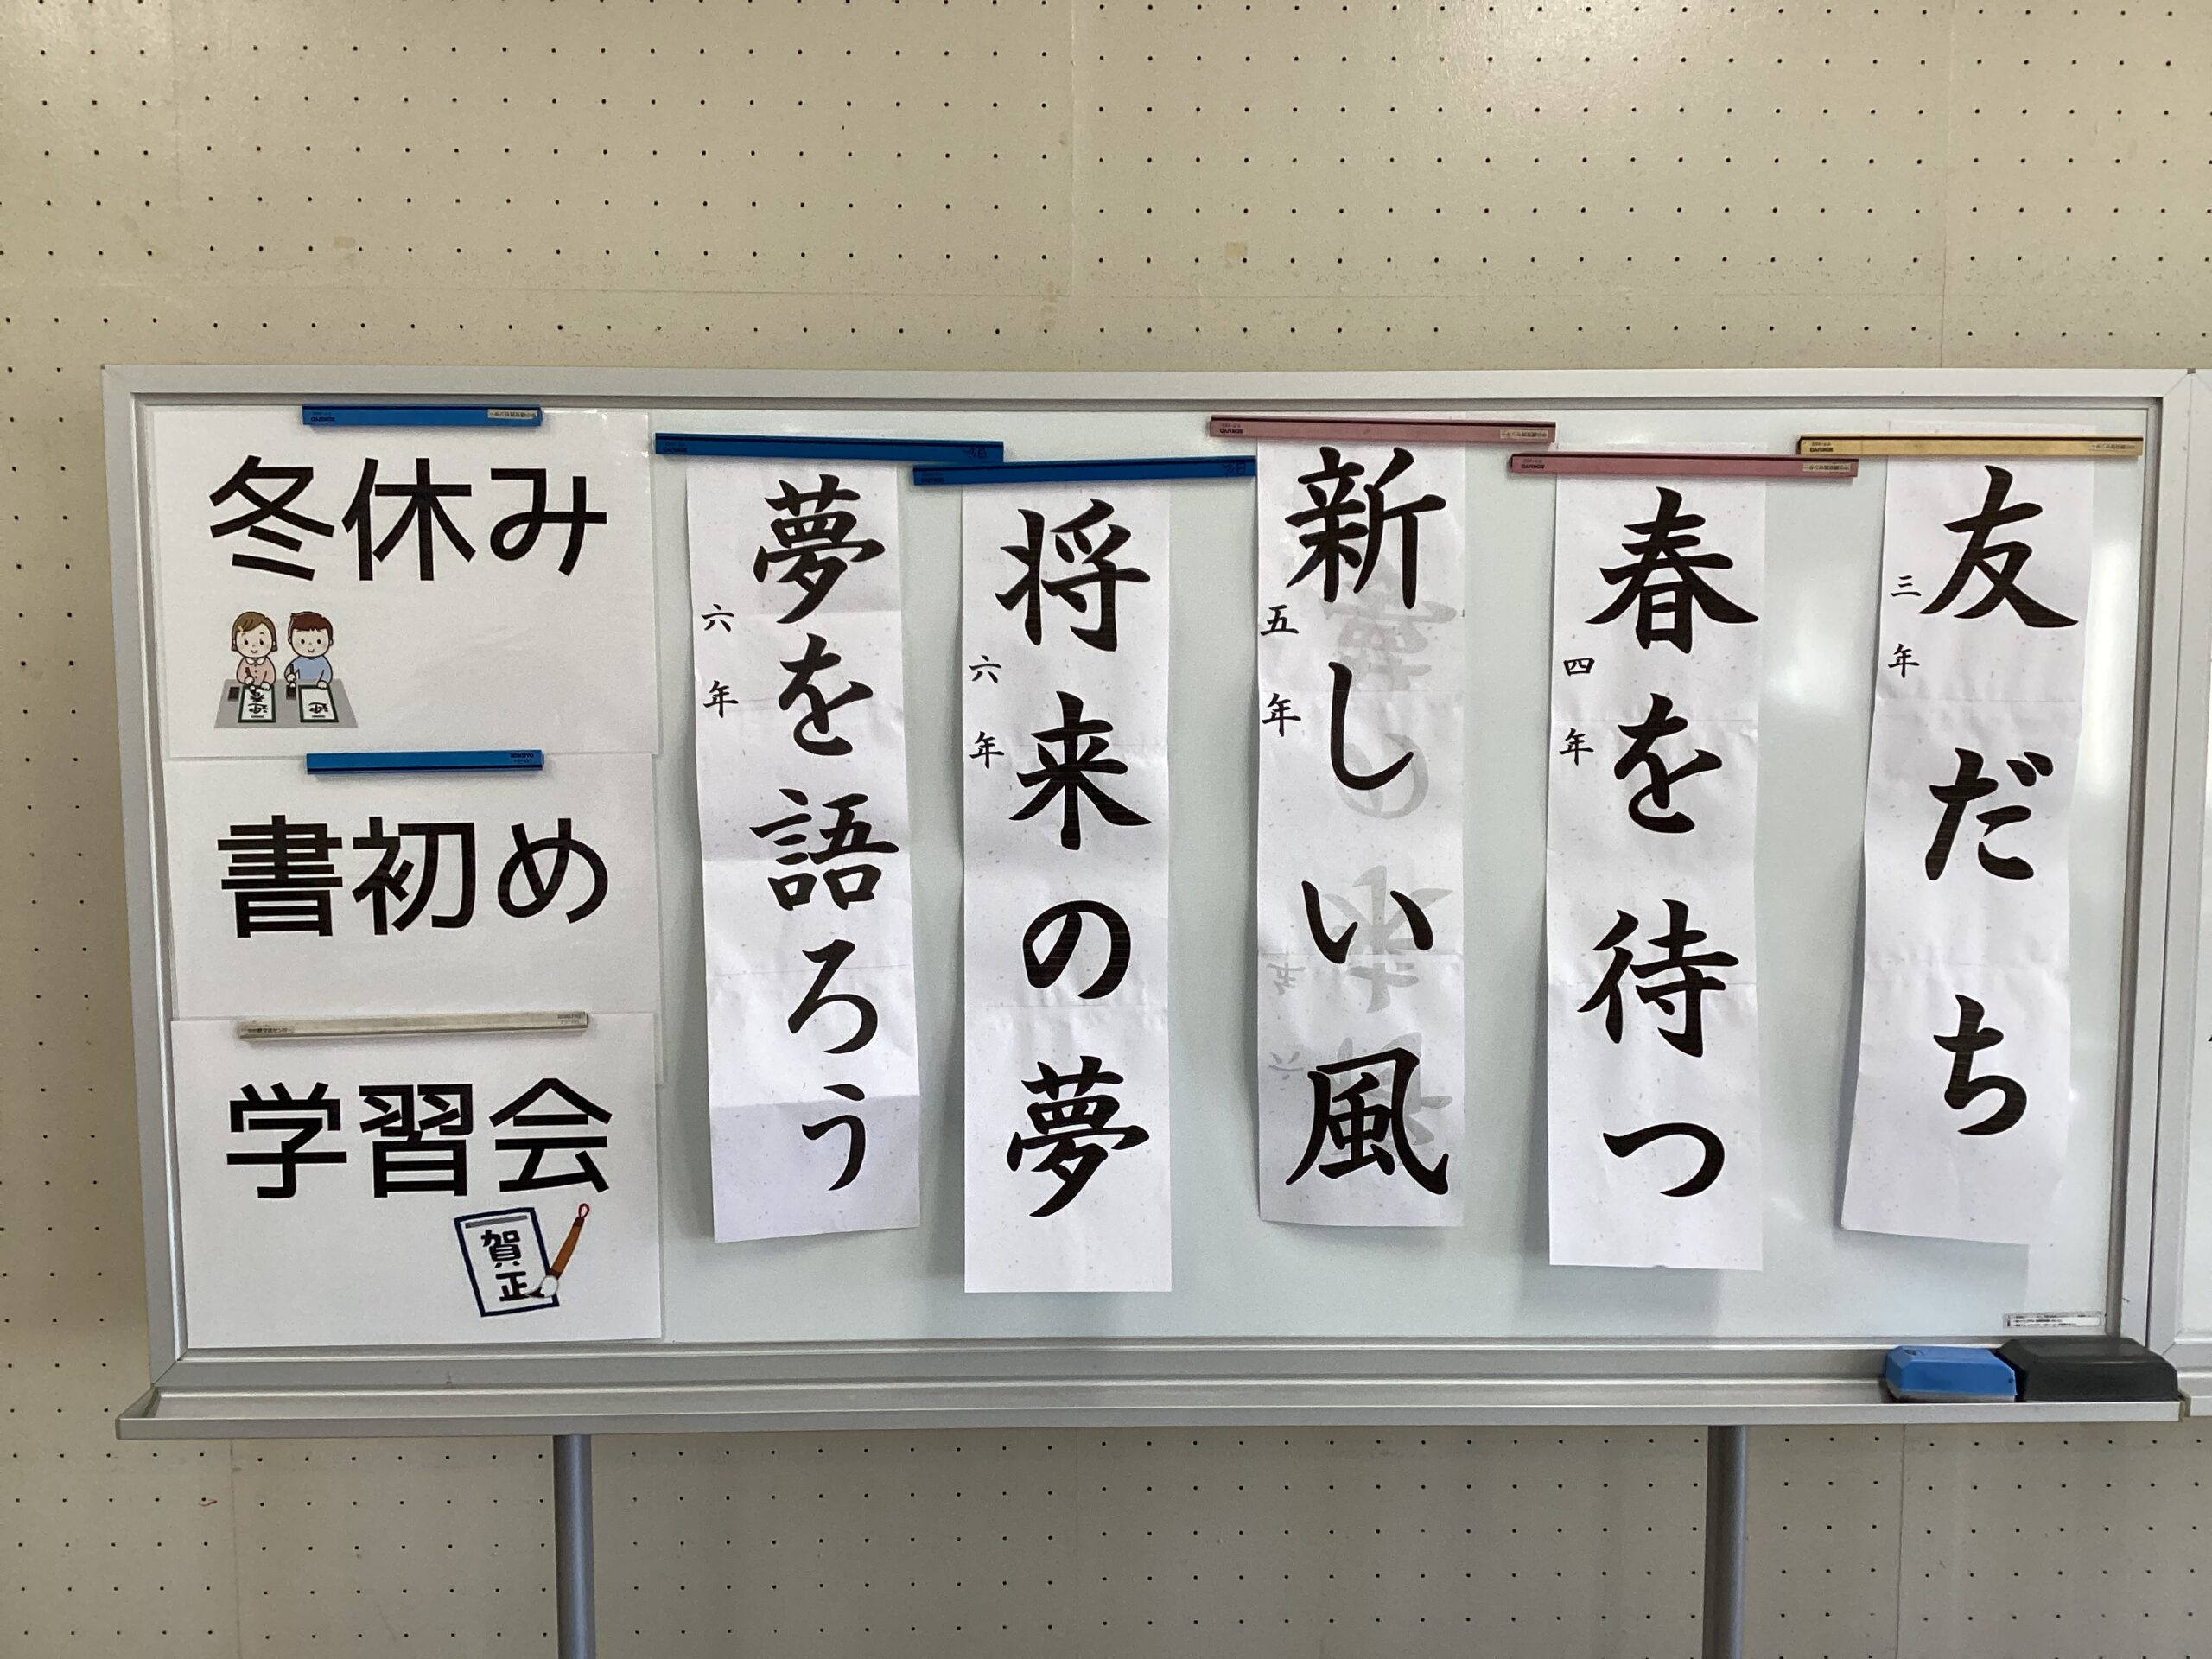 冬休み
書初め
学習会
賀正
友だち
三年
春を待つ
四年
新しい風
五年
将来の夢
六年
夢を語ろう
六年